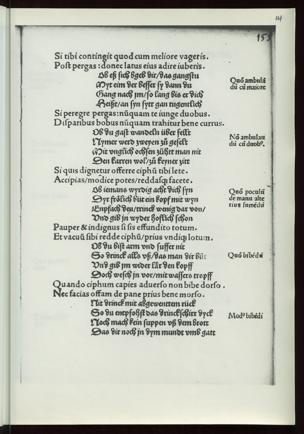 153
Si tibi contingit quod cum meliore vageris.
Post pergas: donec latus eius adire iuberis.
Ob es sich bgeb dir/das gangstu
Myt eim der besser sy dann du
Gang nach jm/so lang bis er dich
Heißt/an syn syte gan tugentlich
Si peregre pergas: nūquam te iunge duobus.
Disparibus bobus nūquam trahitur bene currus.
Ob du gast wandeln über feldt
Nymer werd zweyen zů gesellt
Mit unglich ochsen zühet man nit
Den karren wol/zů keyner zitt
Si quis dignetur offerre ciphū tibi lete.
Accipias/modice potes/reddasqȝ facete.
Ob iemans wyrdig acht dich syn
Dyr frölich büt ein kopf mit wyn
Enpfach den/trinck wenig dar von/
Vnd gib jn wyder hoflich schon
Pauper & indignus si sis effundito totum.
Et vacuū sibi redde ciphū/prius vndiqȝ lotum.
Ob du bist arm vnd suffer nit
So drinck alls vß/das man dir büt
Vnd gib jm wider lär den kopff
Doch wesch jn vor/mit wassers tropff
Quando ciphum capies aduerso non bibe dorso.
Nec facias offam de pane prius bene morso.
Nit drinck mit abgewentem rück
So du entpfohst das drinckschirr dyck
Noch mach kein suppen vß dem brott
Das dir noch jn dym mundt vmb gatt
Quō ambulādū cū maiore
Quō bibēdū
Modꝰ bibēdi